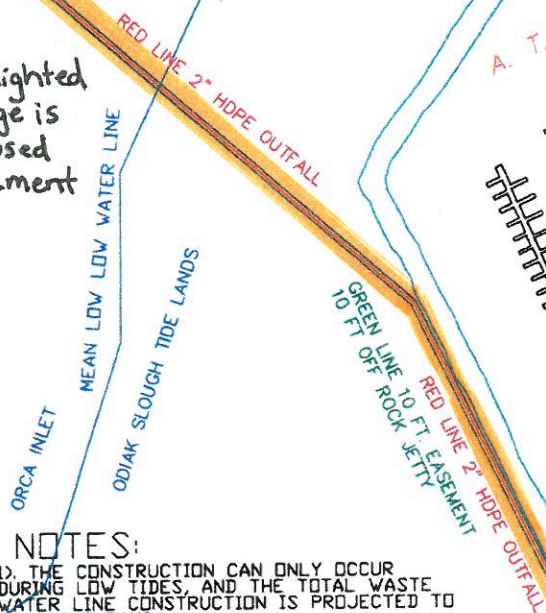 RED LINE 2" HDPE OUTFALL
A. T.
MEAN LOW LOW WATER LINE
ODIAK SLOUGH TIDE LANDS
ORCA INLET
GREEN LINE 10 FT. EASEMENT
10 FT OFF ROCK JETTY
RED LINE 2" HDPE OUTFALL
NOTES:
THE CONSTRUCTION CAN ONLY OCCUR
DURING LOW TIDES, AND THE TOTAL WASTE
WATER LINE CONSTRUCTION IS PROJECTED TO